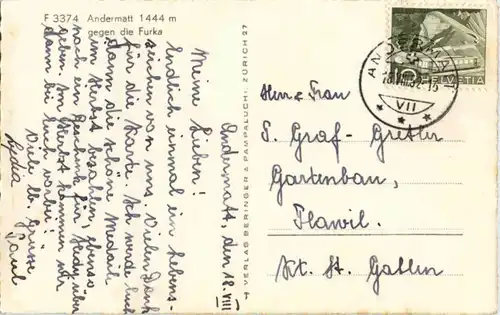 F 3374 Andermatt 1444 m
gegen die Furka
Andermatt, den 18. VIII
Meine Lieben!
Endlich einmal ein Lebens-
zeichen von uns. Vielen Dank
für die Karte. Ich werde Euch
dann die schöne Medail
im Herbst bezahlen, ebenso
noch ein Geschenk für Heidy über
geben. Im Herbst kommen wir
dann bei Euch vorbei!
Viele lb. Grüsse
Paul
Lydia
VERLAG BERINGER & PAMPALUCHI, ZÜRICH 27
HELVETIA
ANDERMATT
VII
Herr & Frau
S. Graf-Gretler
Gartenbau,
Flawil.
Kt. St. Gallen